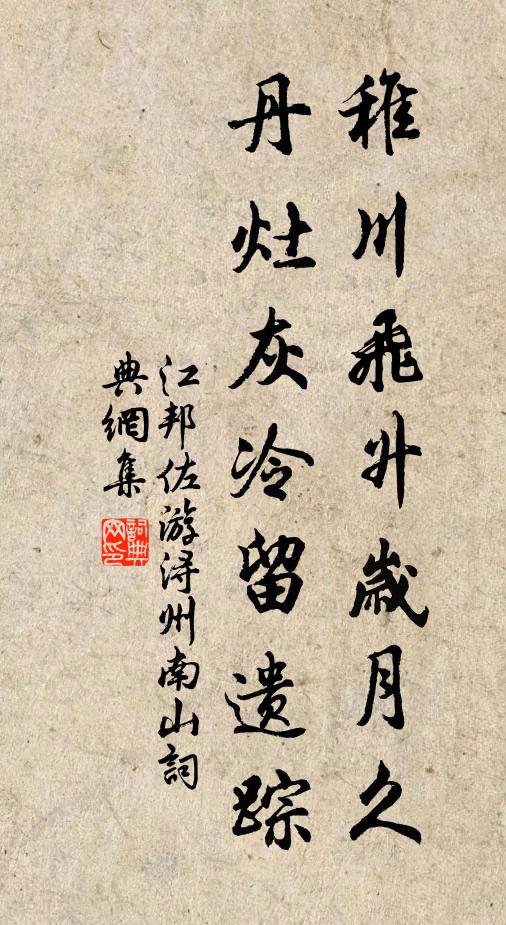 稚川飛升歲月久
丹灶灰冷留遺踪
江邦佐游浔州南山詞
典網集
詞典網印